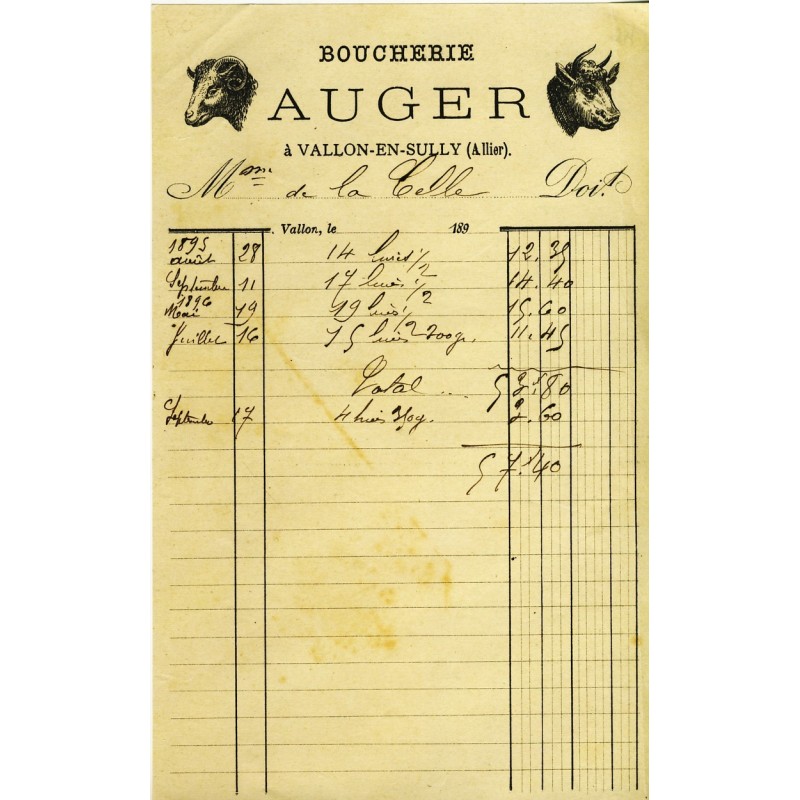 BOUCHERIE
AUGER
à VALLON-EN-SULLY (Allier).
Mme de la Celle Doit
Vallon, le 189
1895
août 28 14 livres 1/2 12.35
Septembre 11 17 livres 1/2 14.40
1896
Mai 19 19 livres 1/2 15.60
Juillet 16 15 livres 200g. 11.45
Total ... 53.80
Septembre 17 4 livres 3.60
57.40